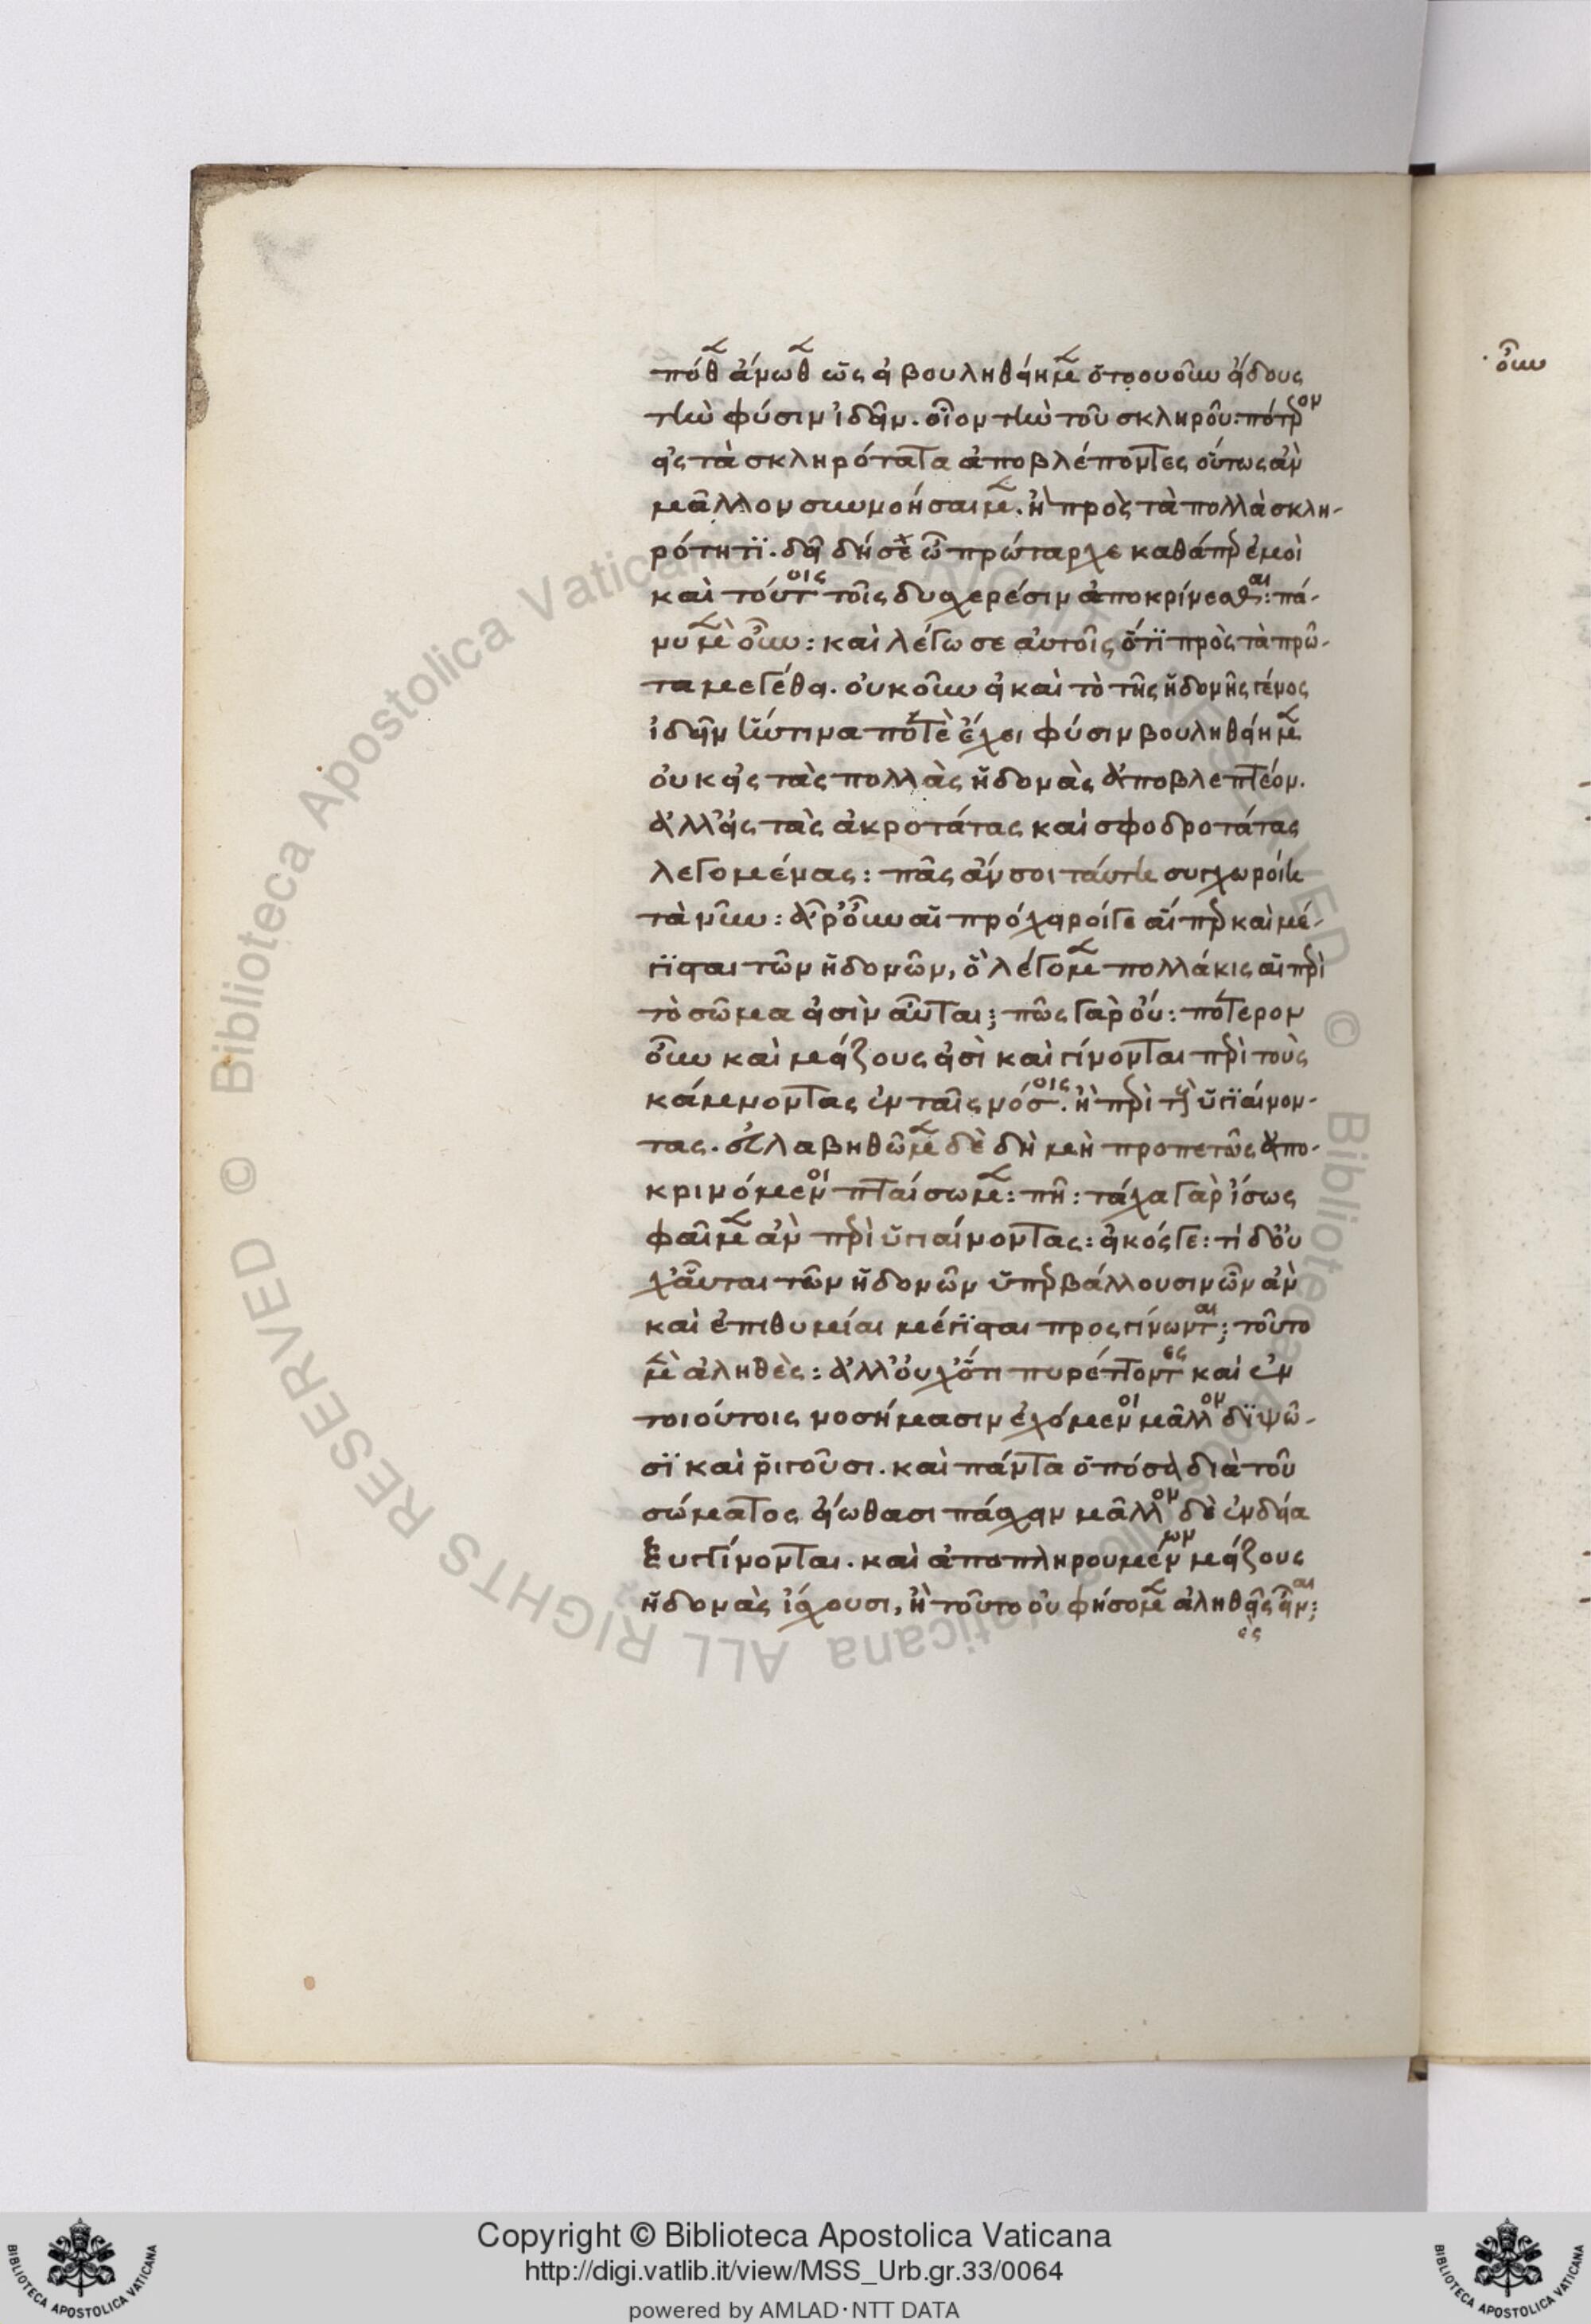 πόθεν ἄνωθεν ὡς εἰ βουληθείημεν ὅτου οὖν εἴδους
τὴν φύσιν ἰδεῖν. οἷον τὴν τοῦ σκληροῦ: πότερον
εἰς τὰ σκληρότατα ἀποβλέποντες οὕτως ἂν
μᾶλλον συννοήσαιμεν. ἢ πρὸς τὰ πολλὰ σκλη-
ρότητι. δεῖ δή σε ὦ πρώταρχε καθάπερ ἐμοὶ
καὶ τούτοις τοῖς δυσχερέσιν ἀποκρίνεσθαι: πά-
νυ μὲν οὖν: καὶ λέγω σε αὐτοῖς ὅτι πρὸς τὰ πρῶ-
τα μεγέθει. οὐκοῦν εἰ καὶ τὸ τῆς ἡδονῆς γένος
ἰδεῖν ἥντινα ποτὲ ἔχει φύσιν βουληθείημεν
οὐκ εἰς τὰς πολλὰς ἡδονὰς ἀποβλεπτέον.
ἀλλ' εἰς τὰς ἀκροτάτας καὶ σφοδροτάτας
λεγομένας: πᾶς ἄν σοι ταύτῃ συγχωροίη
τὰ νῦν: ἆρ' οὖν αἱ πρόχειροί γε αἵπερ καὶ μέ-
γισται τῶν ἡδονῶν, ὃ λέγομεν πολλάκις αἱ περὶ
τὸ σῶμα εἰσὶν αὗται; πῶς γὰρ οὔ: πότερον
οὖν καὶ μείζους εἰσὶ καὶ γίνονται περὶ τοὺς
κάμνοντας ἐν ταῖς νόσοις. ἢ περὶ τοὺς ὑγιαίνον-
τας. εὐλαβηθῶμεν δὲ δὴ μὴ προπετῶς ἀπο-
κρινόμενοι πταίσωμεν: πῆ: τάχα γὰρ ἴσως
φαῖμεν ἂν περὶ ὑγιαίνοντας: εἰκός γε: τί δ' οὐ
χ' αὗται τῶν ἡδονῶν ὑπερβάλλουσιν ὧν ἂν
καὶ ἐπιθυμίαι μέγισται προςγίνωνται; τοῦτο
μὲν ἀληθές: ἀλλ' οὐχ' ὅτι πυρέττοντες καὶ ἐν
τοιούτοις νοσήμασιν ἐχόμενοι μᾶλλον διψῶ-
σι καὶ ῥιγοῦσι. καὶ πάντα ὁπόσα διὰ τοῦ
σώματος εἰώθασι πάσχειν μᾶλλον δὲ ἐνδείᾳ
ξυγγίνονται. καὶ ἀποπληρουμένων μείζους
ἡδονὰς ἴσχουσι, ἢ τοῦτο οὐ φήσομεν ἀληθὲς εἶναι;
οὖν
Copyright © Biblioteca Apostolica Vaticana
http://digi.vatlib.it/view/MSS_Urb.gr.33/0064
powered by AMLAD·NTT DATA